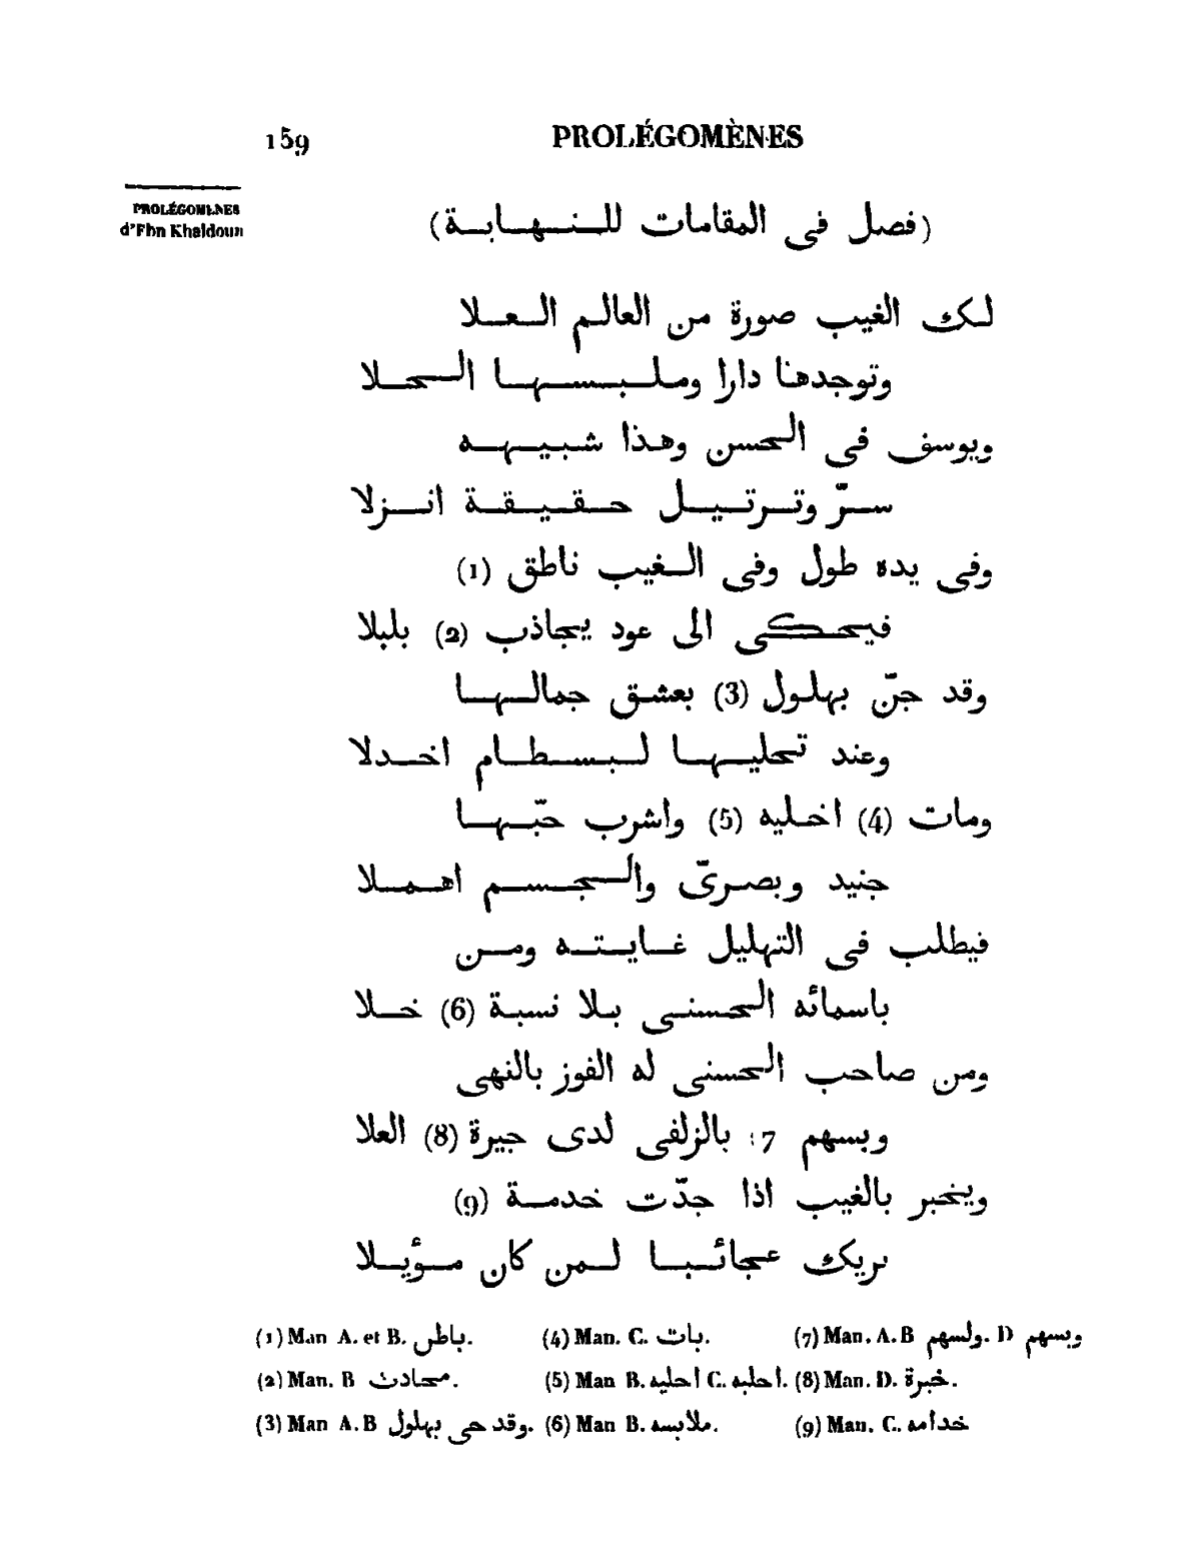 159
PROLÉGOMÈNES
PROLÉGOMÈNES
d'Ebn Khaldoun
(فصل فى المقامات للنهابة)
لك الغيب صورة من العالم العلا
وتوجدهنا دارا وملبسها الحلا
ويوسف فى الحسن وهذا شبيهه
سرّ وترتيل حقيقة انزلا
وفى يده طول وفى الغيب ناطق (1)
فيحكى الى عود يجاذب (2) بلبلا
وقد جنّ بهلول (3) بعشق جمالها
وعند تجليها لبسطام اخدلا
ومات (4) اخليه (5) واشرب حبّها
جنيد وبصرىّ والجسم اهملا
فيطلب فى التهليل غايته ومن
باسمائه الحسنى بلا نسبة (6) خلا
ومن صاحب الحسنى له الفوز بالنهى
وبسهم 7: بالزلفى لدى جيرة (8) العلا
ويخبر بالغيب اذا جدّت خدمة (9)
يريك عجائبا لمن كان مؤيلا
(1) Man A. et B. باطن.
(2) Man. B محادث.
(3) Man A. B وقد حى بهلول.
(4) Man. C. بات.
(5) Man B. احليه C. احلبه.
(6) Man B. ملابسه.
(7) Man. A. B ولسهم. D وبسهم
(8) Man. D. خبرة.
(9) Man. C. خدامه